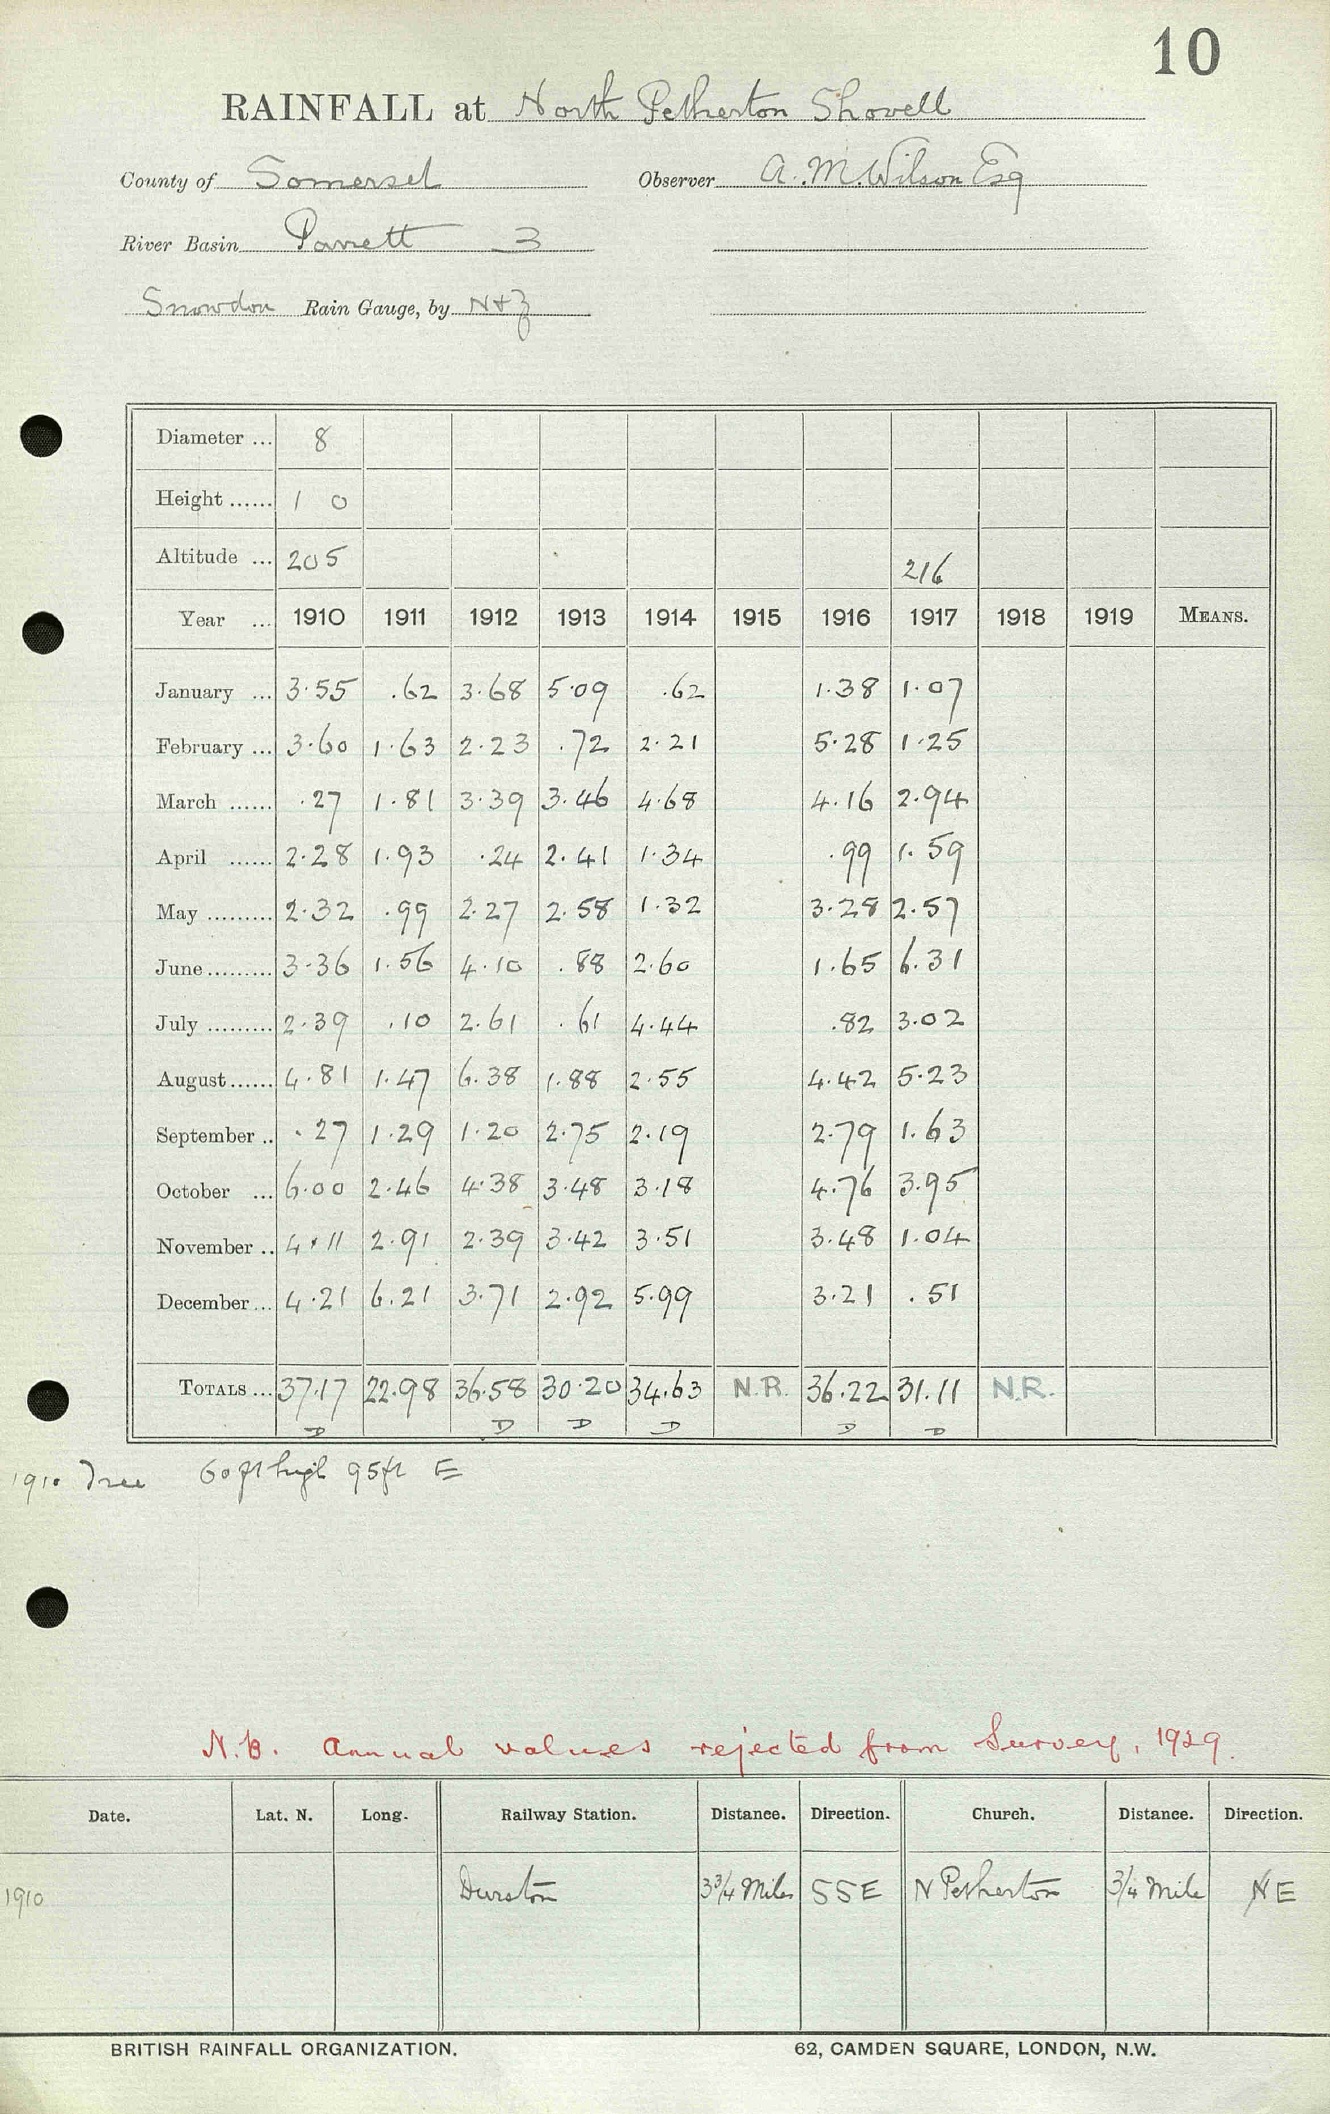 10
RAINFALL at North Petherton Shovell
County of Somerset Observer A. M. Wilson Esq
River Basin Parrett 3
Snowdon Rain Gauge, by N & Z
Diameter ... 8
Height ...... 1 0
Altitude ... 205 216
Year ... 1910 1911 1912 1913 1914 1915 1916 1917 1918 1919 MEANS.
January ... 3.55 .62 3.68 5.09 .62 1.38 1.07
February ... 3.60 1.63 2.23 .72 2.21 5.28 1.25
March ...... .27 1.81 3.39 3.46 4.68 4.16 2.94
April ...... 2.28 1.93 .24 2.41 1.34 .99 1.59
May ......... 2.32 .99 2.27 2.58 1.32 3.28 2.57
June ......... 3.36 1.56 4.10 .88 2.60 1.65 6.31
July ......... 2.39 .10 2.61 .61 4.44 .82 3.02
August ...... 4.81 1.47 6.38 1.88 2.55 4.42 5.23
September .. .27 1.29 1.20 2.75 2.19 2.79 1.63
October ... 6.00 2.46 4.38 3.48 3.18 4.76 3.95
November .. 4.11 2.91 2.39 3.42 3.51 3.48 1.04
December ... 4.21 6.21 3.71 2.92 5.99 3.21 .51
TOTALS ... 37.17 22.98 36.58 30.20 34.63 N.R. 36.22 31.11 N.R.
D D D D D D
1910 Tree 60 ft high 95 ft E
N.B. Annual values rejected from Survey, 1929.
Date. Lat. N. Long. Railway Station. Distance. Direction. Church. Distance. Direction.
1910 Durston 3 3/4 Miles SSE N Petherton 3/4 Mile NE
BRITISH RAINFALL ORGANIZATION. 62, CAMDEN SQUARE, LONDON, N.W.